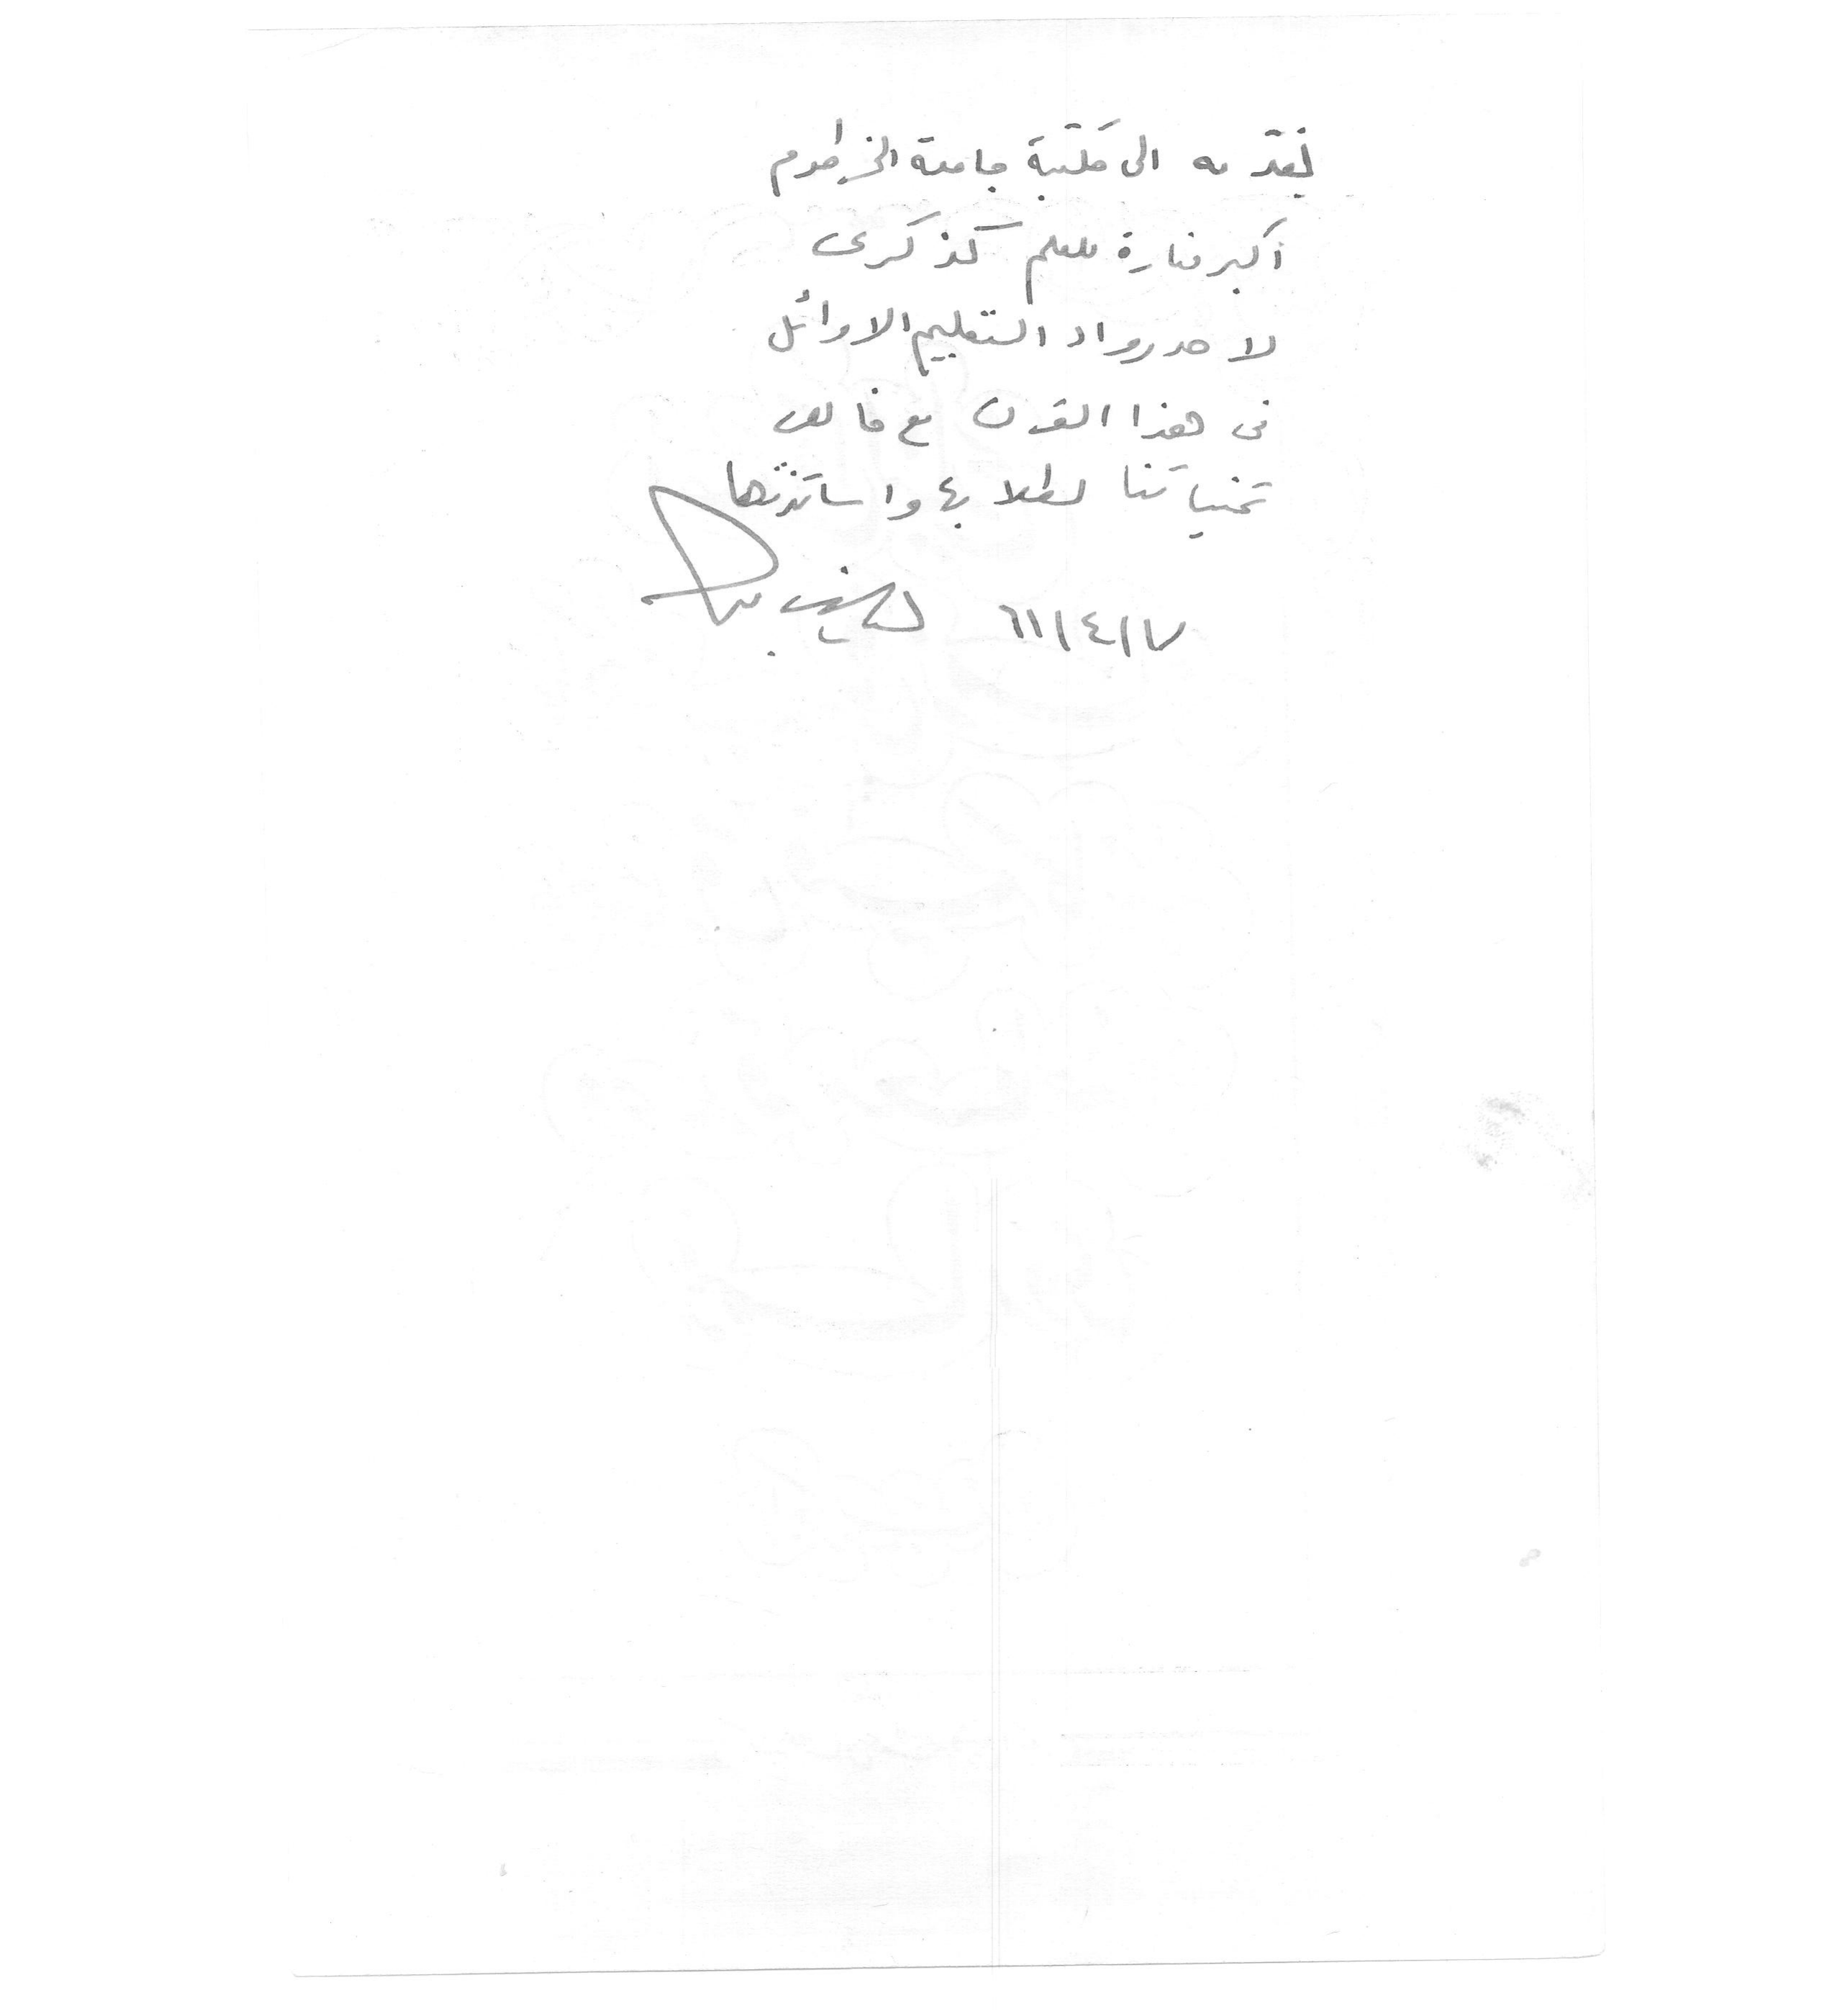 نقدمه الى مكتبة جامعة الخرطوم
أكبر منارة للعلم كذكرى
لاحد رواد التعليم الاوائل
فى هذا القرن مع خالص
تمنياتنا لطلابها واساتذتها